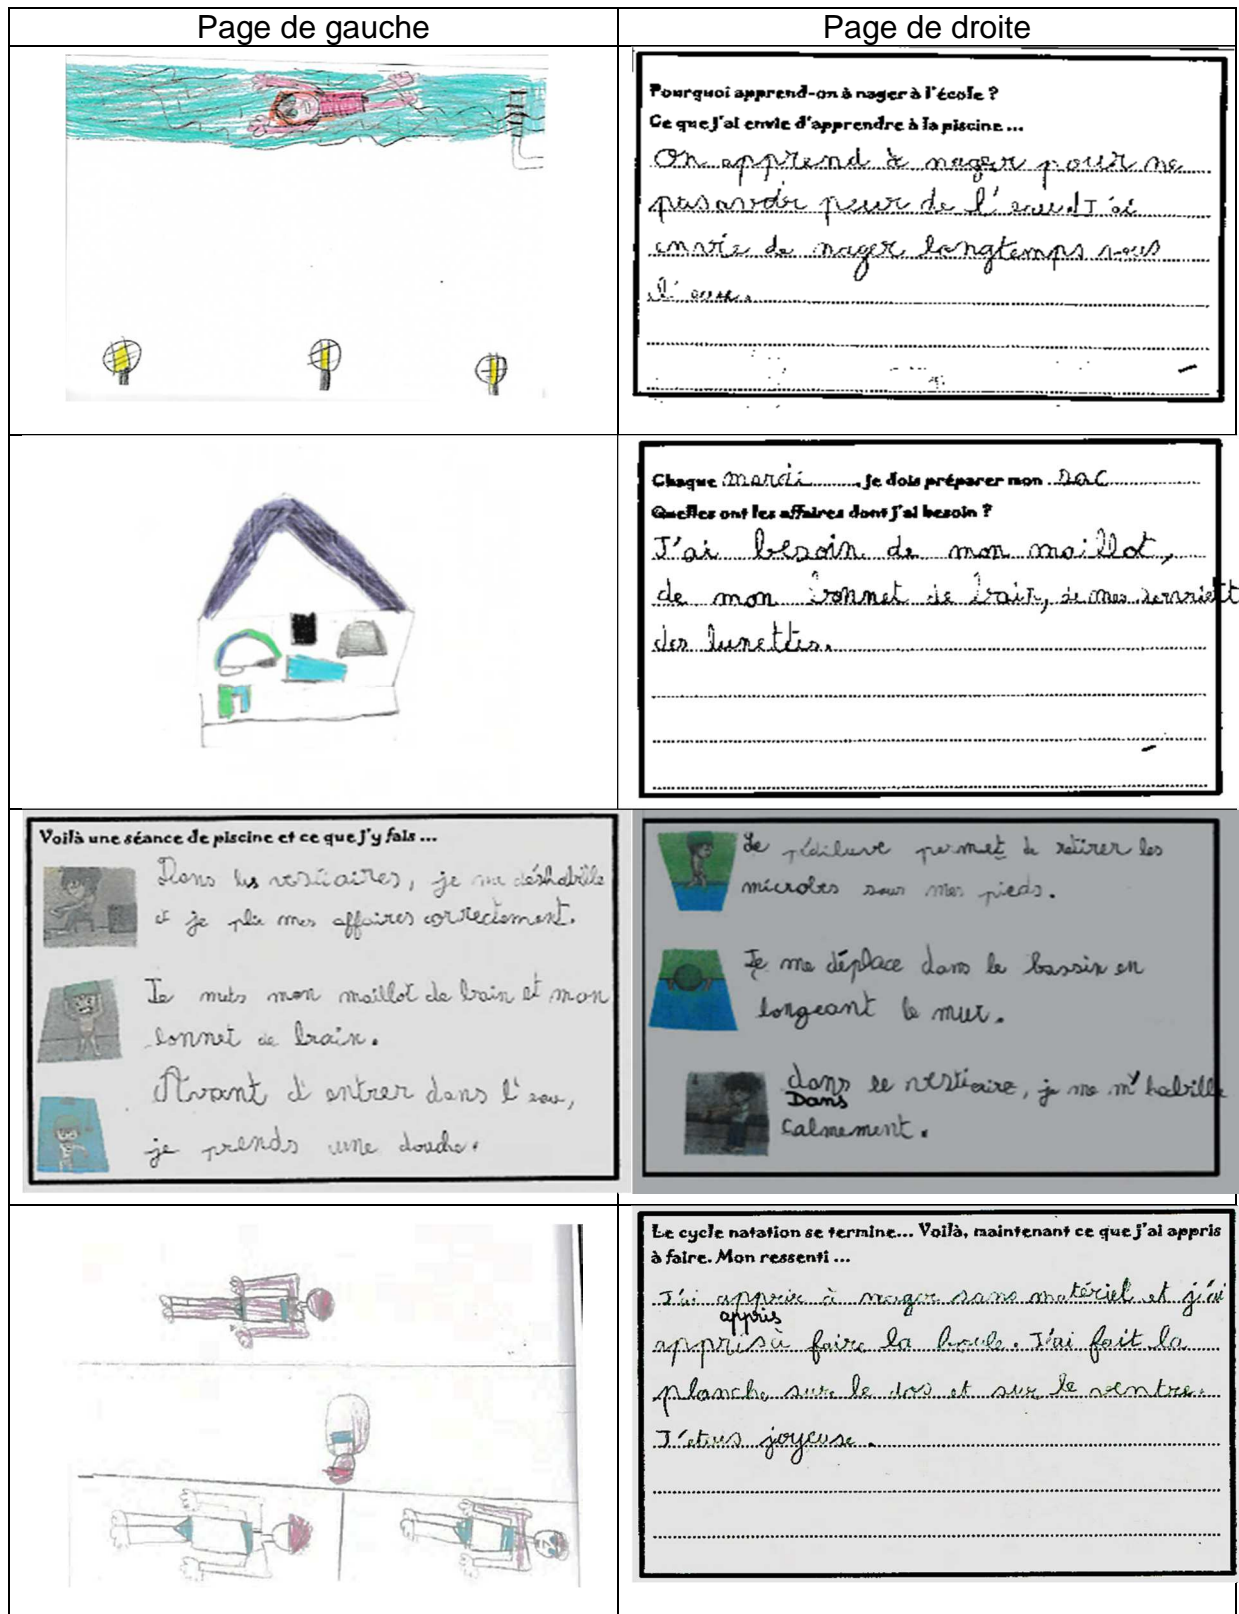 Page de gauche
Page de droite
Pourquoi apprend-on à nager à l'école ?
Ce que j'ai envie d'apprendre à la piscine ...
On apprend à nager pour ne
pas avoir peur de l'eau J'ai
envie de nager longtemps sous
l'eau.
Chaque mardi, je dois préparer mon sac
Quelles ont les affaires dont j'ai besoin ?
J'ai besoin de mon maillot,
de mon bonnet de bain, de mes serviett
des lunettes.
Voilà une séance de piscine et ce que j'y fais ...
Dans les vestiaires, je me déshabille
et je plie mes affaires correctement.
Je mets mon maillot de bain et mon
bonnet de bain.
Avant d'entrer dans l'eau,
je prends une douche.
Le pédiluve permet de retirer les
microbes sous mes pieds.
Je me déplace dans le bassin en
longeant le mur.
dans le vestiaire, je me m'habille
Dans
calmement.
Le cycle natation se termine... Voilà, maintenant ce que j'ai appris
à faire. Mon ressenti ...
J'ai appris à nager sans matériel et j'ai
appris
appris à faire la boule. J'ai fait la
planche sur le dos et sur le ventre.
J'étais joyeuse.